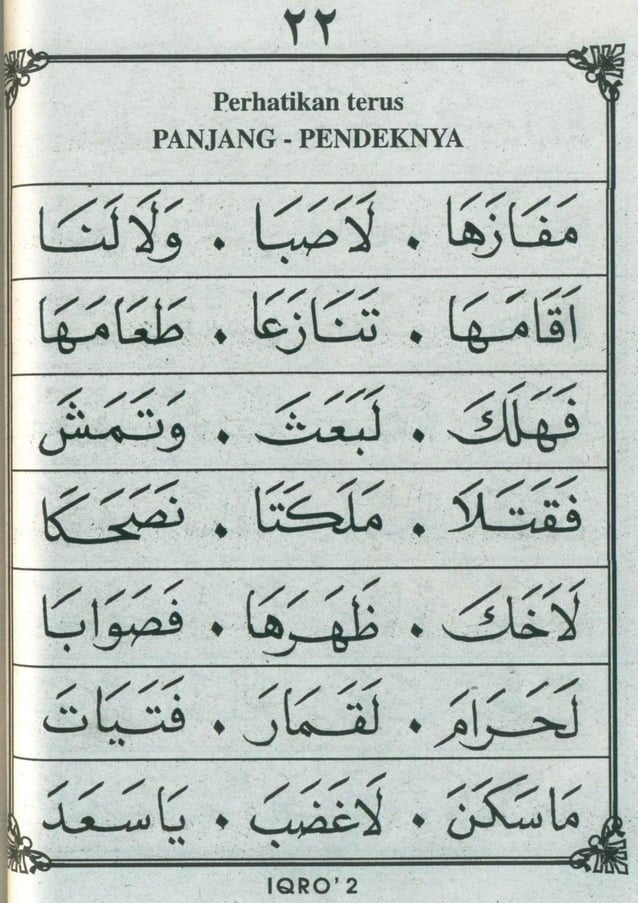 ٢٢
Perhatikan terus
PANJANG - PENDEKNYA
مَفَازَهَا . لَاصَبَا . وَلَالَنَا
اَقَامَهَا . تَنَازَعَا . طَعَامَهَا
فَهَلَكَ . لَبَعَثَ . وَتَمَشَ
فَقَتَلَا . مَلَكَتَا . نَصَحَكَا
لَاَخَكَ . ظَهَرَهَا . فَصَوَابَا
لَحَرَامَ . لَقَمَارَ . فَتَيَاتَ
مَاسَكَنَ . لَاغَضَبَ . يَاسَعَدَ
IQRO' 2